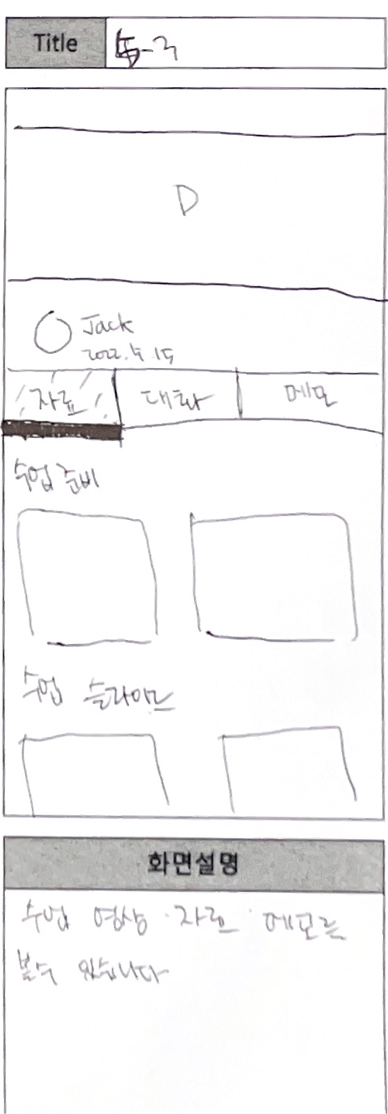 Title
Jack
2022.4.15
자료 대화 메모
수업 준비
수업 슬라이드
화면설명
수업 영상·자료·메모를
볼수 있습니다